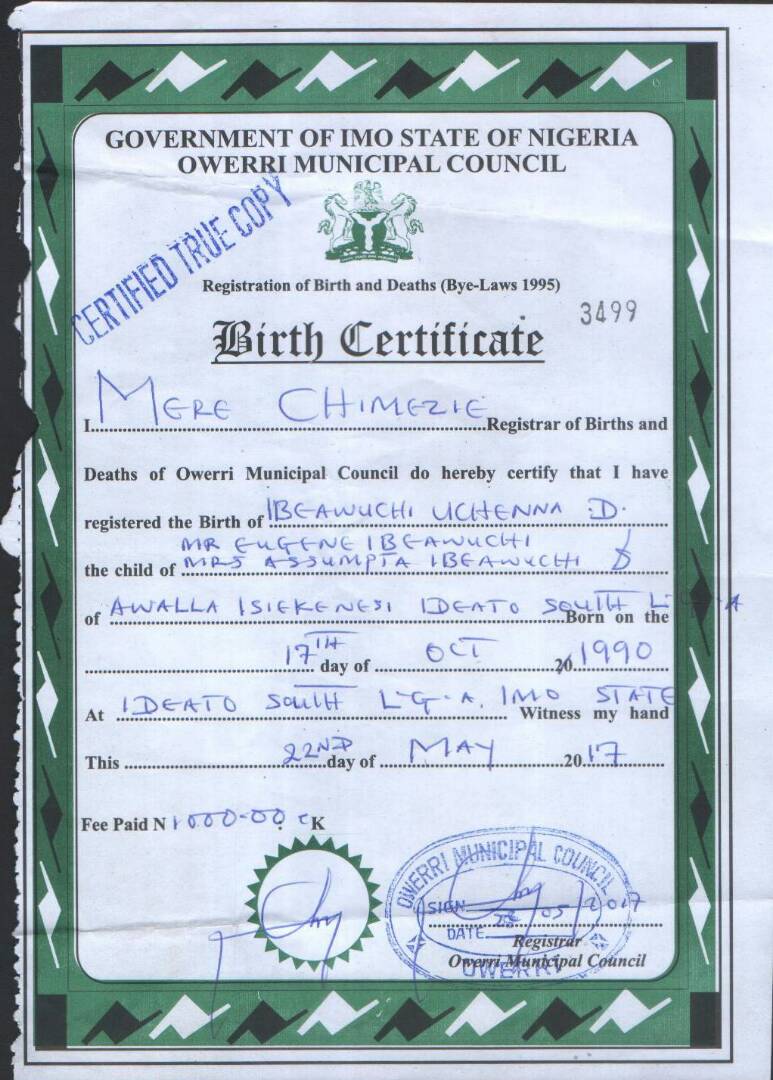 GOVERNMENT OF IMO STATE OF NIGERIA
OWERRI MUNICIPAL COUNCIL
CERTIFIED TRUE COPY
Registration of Birth and Deaths (Bye-Laws 1995)
3499
Birth Certificate
I MERE CHIMEZIE Registrar of Births and
Deaths of Owerri Municipal Council do hereby certify that I have
registered the Birth of IBEAWUCHI UCHENNA D.
MR EUGENE IBEAWUCHI
the child of MRS ASSUMPTA IBEAWUCHI
of AWALLA ISIEKENESI IDEATO SOUTH L.G.A Born on the
17TH day of OCT 20 1990
At IDEATO SOUTH L.G.A. IMO STATE Witness my hand
This 22ND day of MAY 20 17
Fee Paid N 1000-00 K
OWERRI MUNICIPAL COUNCIL
SIGN
DATE 05 2017
Registrar
Owerri Municipal Council
OWERRI